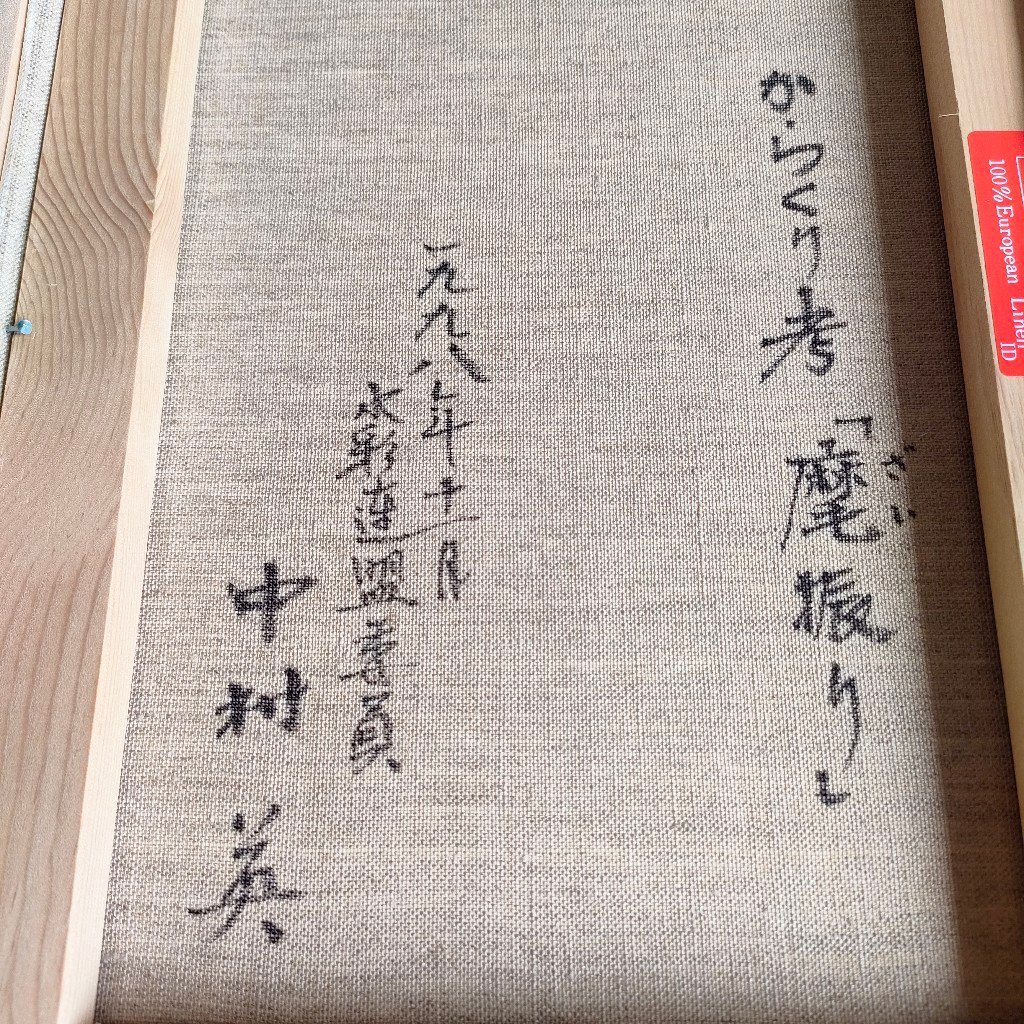 からくり考「麾振り」
ざい
一九九八年十一月
水彩連盟委員
中村 英
100% European Linen
ID